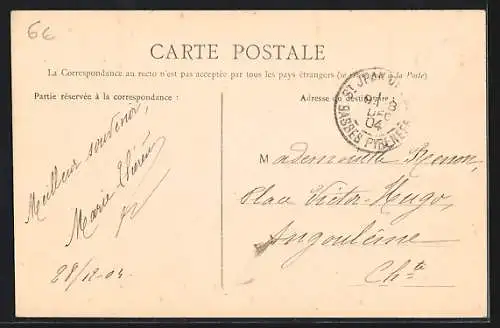 6€
CARTE POSTALE
La Correspondance au recto n'est pas acceptée par tous les pays étrangers (se à la Poste)
Partie réservée à la correspondance :
Adresse du destinataire :
ST JEAN
8
DEC
04
BASSES PYRENEES
Meilleur souvenir,
Marie
Mademoiselle
Place Victor-Hugo,
Angoulême
Chte
28/12-04.